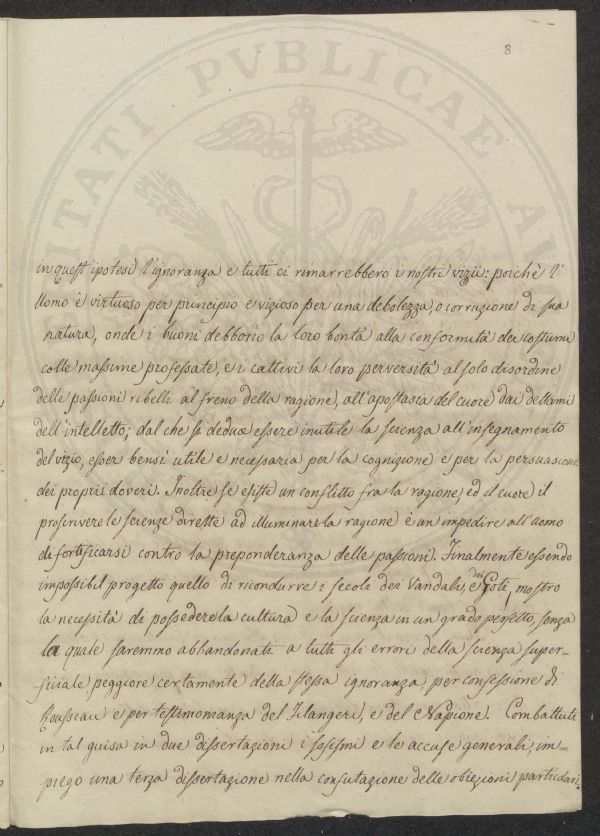 8
TATI PVBLICAE
in quest'ipotesi l'ignoranza e tutti ci rimarrebbero i nostri vizii: poichè l'
Uomo è virtuoso per principio e vizioso per una debolezza, o corruzione di sua
natura, onde i buoni debbono la loro bontà alla conformità dei costumi
colle massime professate, e i cattivi la loro perversità al solo disordine
delle passioni ribelli al freno della ragione, all'apostasia del cuore dai dettami
dell'intelletto; dal che si deduce essere inutile la scienza all'insegnamento
del vizio, esser bensì utile e necessaria per la cognizione e per la persuasione
dei proprii doveri. Inoltre se esiste un conflitto fra la ragione, ed il cuore il
proscrivere le scienze dirette ad illuminare la ragione è un impedire all'uomo
di fortificarsi contro la preponderanza delle passioni. Finalmente essendo
impossibil progetto quello di ricondurre i secoli dei Vandali, e dei Goti, mostro
la necessità di possedere la cultura e la scienza in un grado perfetto, senza
la quale saremmo abbandonati a tutti gli errori della scienza super-
ficiale peggiore certamente della stessa ignoranza per confessione di
Rousseau e per testimonianza del Filangeri, e del Napione. Combattuti
in tal guisa in due dissertazioni i sofismi e le accuse generali, im-
piego una terza dissertazione nella confutazione delle obiezioni particolari.